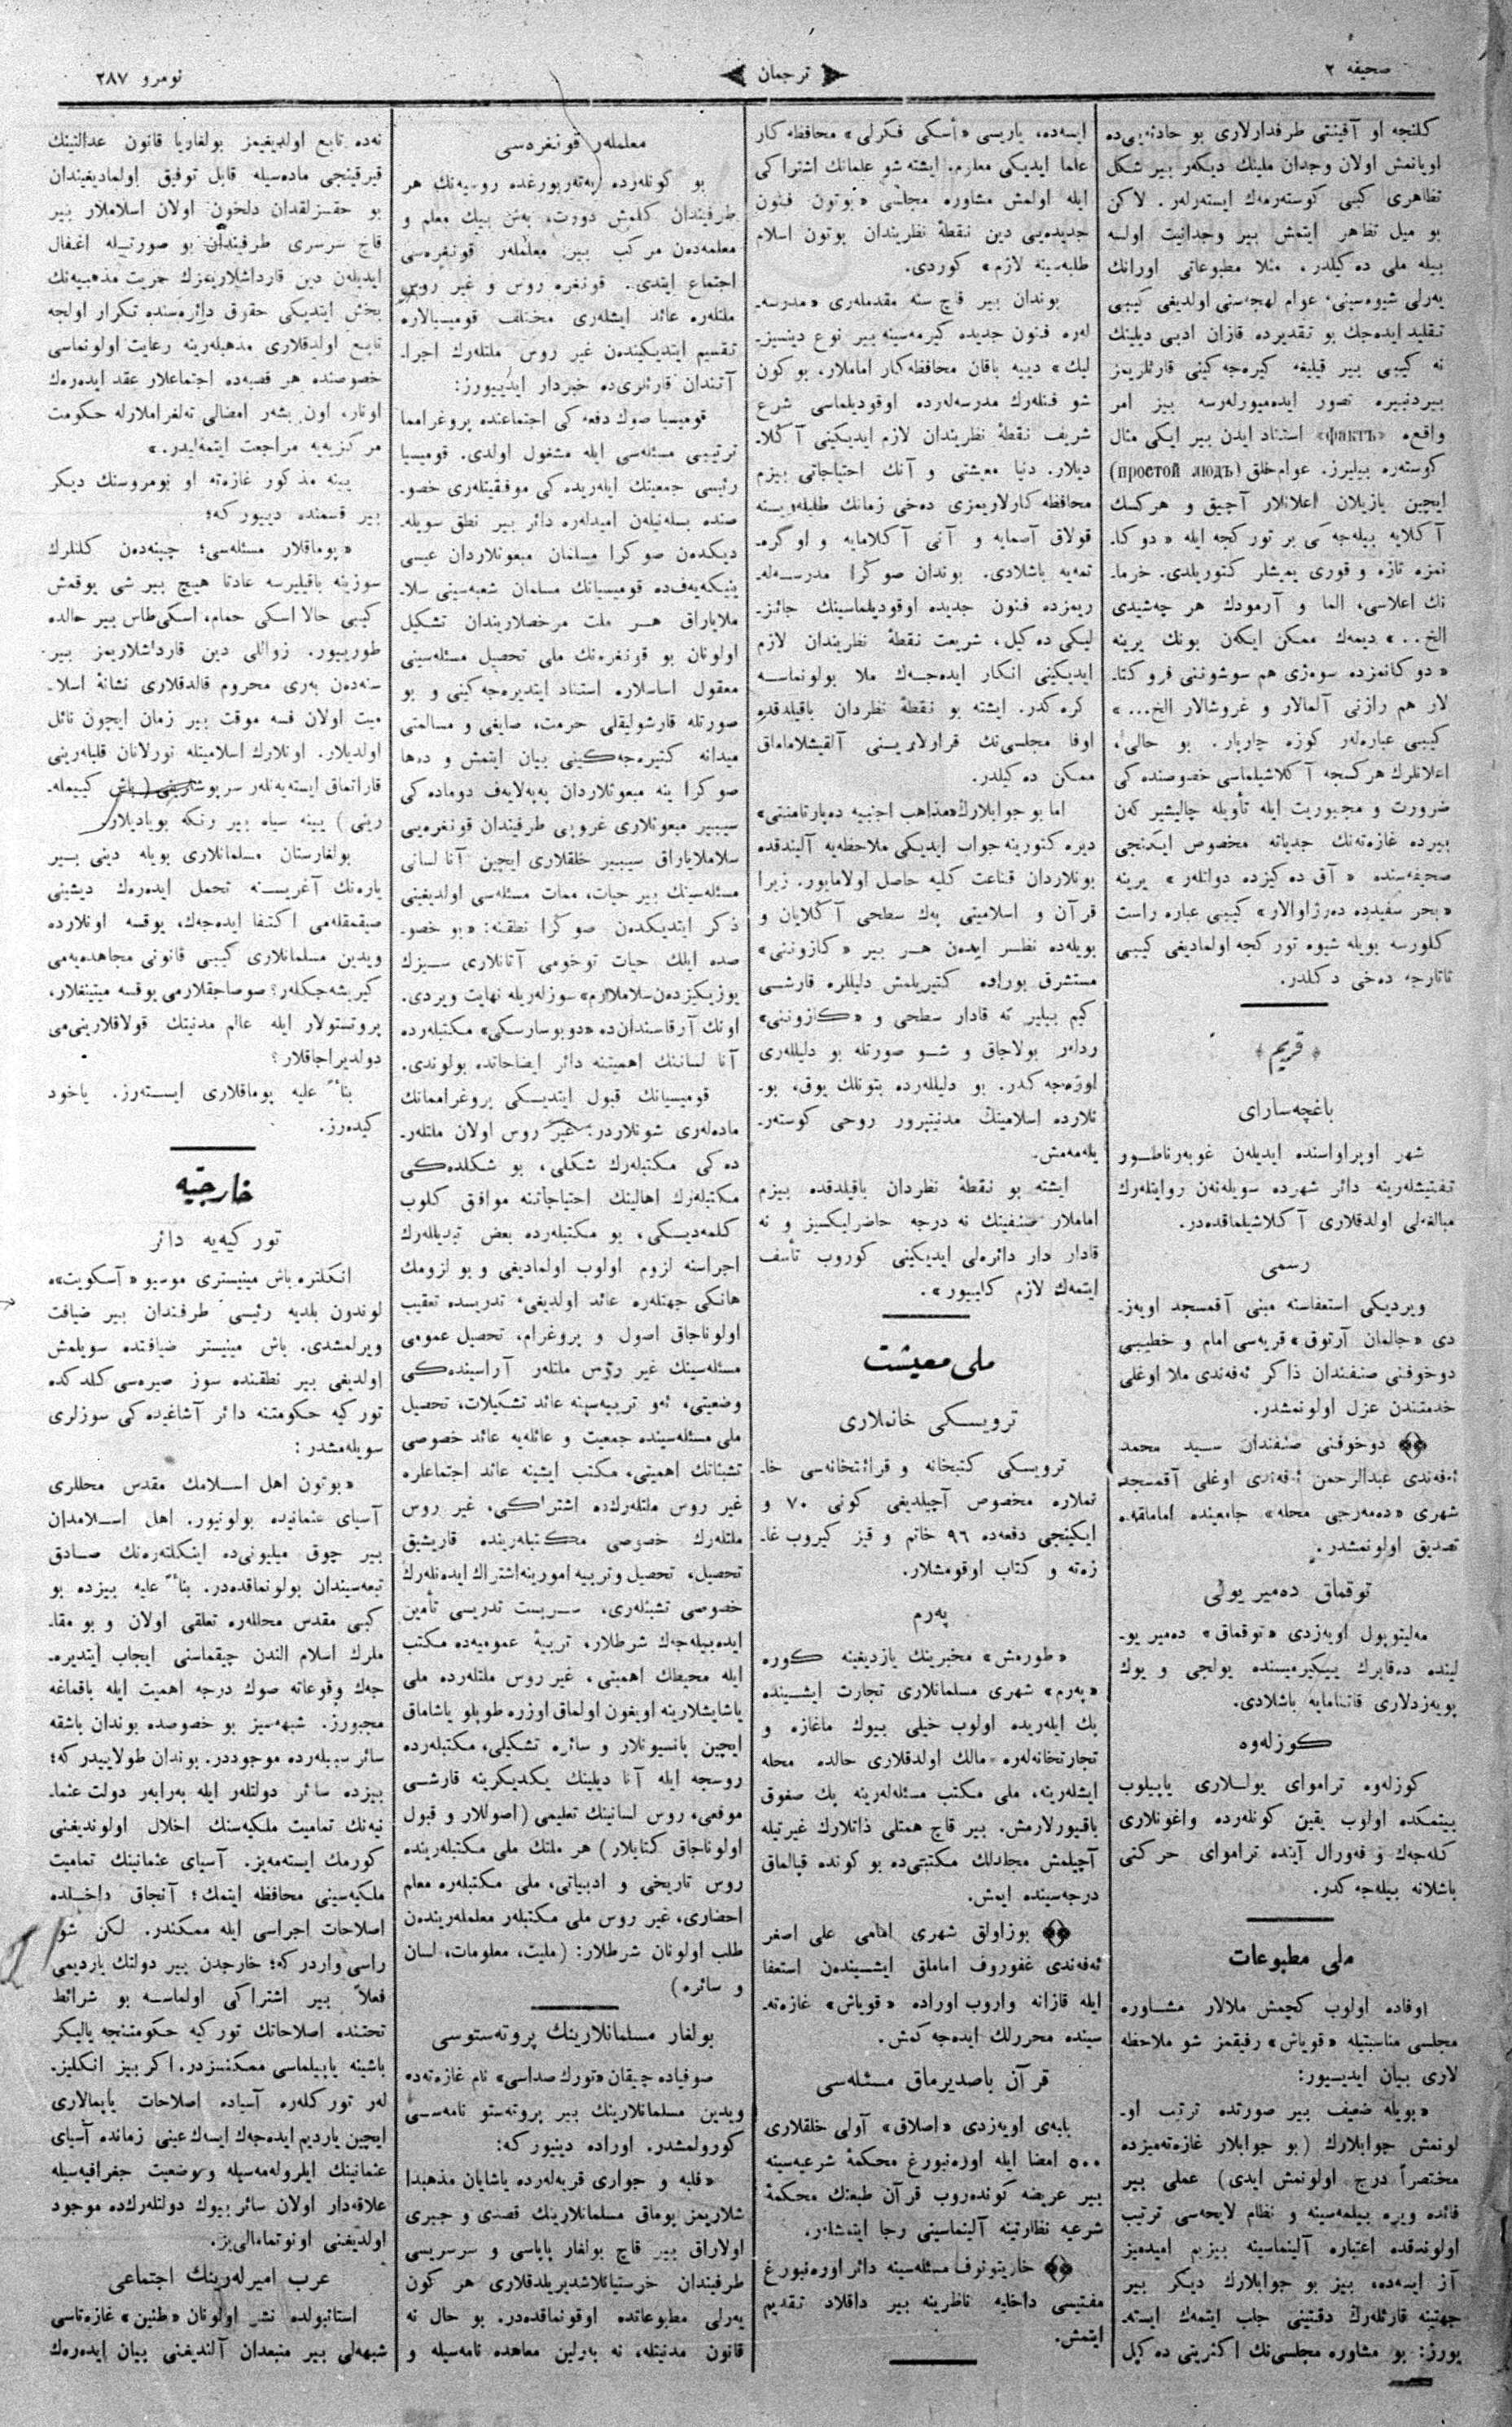 صحیفه ٢
ترجمان
نومرو ٢٨٧
كلنجه او آقینتی طرفدارلاری بو حادثه‌یی‌ده
اویانمش اولان وجدان ملینك دیكەر بیر شكل
تظاهری كبی كوسترمەك ایستەرلەر. لاكن
بو میل تظاهر ایتمش بیر وجدانیت اولسه
بیله ملی دەكیلدر. مثلا مطبوعاتی اورانك
یەرلی شیوه‌سینی، عوام لهجه‌سنی اولدیغی كیبی
تقلید ایده‌جك بو تقدیرده قازان ادبی دیلینك
نه كیبی بیر قیلیغه كیره‌جه‌كینی قارئلریمز
بیردنبیره تصور ایده‌میورلەرسه بیز امر
واقعه «фактъ» استناد ایدن بیر ایكی مثال
كوستەره بیلیرز. عوام خلق (простой людъ)
ایچین یازیلان اعلانلار آچیق و هركسك
آكلایه بیله‌جه‌كی بر توركجه ایله «دوكا-
نمزه تازه و قوری یمیشلر كتوریلدی. خرما-
نك اعلاسی، الما و آرمودك هر چەشیدی
الخ..» دیمەك ممكن ایكەن بونك یرینه
«دوكانمزده سوەژی هم سوشوننی فروكتا-
لار هم رازنی آلمالار و غروشالار الخ...»
كیبی عباره‌لەر كوزه چارپار. بو حالی،
اعلانلرك هركسجه آكلاشیلماسی خصوصنده‌كی
ضرورت و مجبوریت ایله تأویله چالیشیركەن
بیرده غازەته‌نك جدیاته مخصوص ایكنجی
صحیفه‌سنده «آق دەكیزده دولتلەر» یرینه
«بحر سفیدده دەرژاوالار» كیبی عباره راست
كلورسه بویله شیوه توركجه اولمادیغی كیبی
تاتارجه دخی دكلدر.
قریم
باغچه‌سارای
شهر اوپراواسنده ایدیلەن غوبەرناطور
تفتیشلەرینه دائر شهرده سویلەنەن روایتلەرك
مبالغه‌لی اولدقلاری آكلاشیلماقده‌در.
رسمی
ویردیكی استعفاسنه مبنی آقمسجد اویەز-
دی «جالمان آرتوق» قریه‌سی امام و خطیبی
دوخوفنی صنفندان ذاكر ئه‌فه‌ندی ملا اوغلی
خدمتندن عزل اولونمشدر.
دوخوفنی صنفندان سید محمد
ئه‌فه‌ندی عبدالرحمن ئه‌فه‌ندی اوغلی آقمسجد
شهری «دەمەرجی محله» جامعینده امامالغه
تصدیق اولونمشدر.
توقماق دەمیر یولی
مەلیتوپول اویەزدی «توقماق» دەمیر یو-
لینده
پویەزدلاری قاتنامایه باشلادی.
كوزلەوه
كوزلەوه تراموای یوللاری یاپیلوب
بیتمكده اولوب یقین كونلەرده واغونلاری
كله‌جەك و فه‌ورال آینده تراموای حركتی
باشلانه بیله‌جه‌كدر.
ملی مطبوعات
اوفاده اولوب كچمش ملالار مشاوره
مجلسی مناسبتیله «قویاش» رفیقمز شو ملاحظه
لاری بیان ایدیسیور:
«بویله ضعیف بیر صورتده ترتیب او-
لونمش جوابلارك (بو جوابلار غازه‌تەمیزده
مختصراً درج اولونمش ایدی) عملی بیر
فائده ویره بیلمه‌سینه و نظام لایحه‌سی ترتیب
اولوندقده اعتباره آلینماسینه بیزیم امیدیمیز
آز ایسه‌ده، بیز بو جوابلارك دیكر بیر
جهتینه قارئلەرڭ دقتینی جلب ایتمەك ایسته-
یورز: بو مشاوره مجلسی‌نك اكثریتی ده‌كیل
ایسه‌ده، یاریسی «أسكی فكرلی» محافظه‌كار
علما ایدیكی معلوم. ایشته شو علمانك اشتراكی
ایله اولمش مشاوره مجلسی «بوتون فنون
جدیده‌یی دین نقطهٔ نظریندان بوتون اسلام
طلبه‌سینه لازم» كوردی.
بوندان بیر قاچ سنه مقدمله‌ری «مدرسه-
لەره فنون جدیده كیرمه‌سینه بیر نوع دینسیز-
لیك» دییه باقان محافظه‌كار اماملار، بو كون
شو فنلەرك مدرسه‌لەرده اوقودیلماسی شرع
شریف نقطهٔ نظریندان لازم ایدیكینی آكلا-
دیلار. دنیا معیشتی و آنك احتیاجاتی بیزم
محافظه‌كارلاریمزی دخی زمانك طلبله‌رینه
قولاق آصمایه و آنی آكلامایه و اوگره-
نمه‌یه باشلادی. بوندان صوڭرا مدرسه‌له-
ریمزده فنون جدیده اوقودیلماسینك جائز-
لیكی ده‌كیل، شریعت نقطهٔ نظریندان لازم
ایدیكینی انكار ایده‌جەك ملا بولونماسه
كره‌كدر. ایشته بو نقطهٔ نظردان باقیلدقده
اوفا مجلسی‌نك قرارلارینی آلقیشلاماماق
ممكن دەكیلدر.
اما بو جوابلارڭ «مذاهب اجنبیه دەپارتامنتی»
دیره‌كتورینه جواب ایدیكی ملاحظه‌یه آلیندقده
بونلاردان قناعت كلیه حاصل اولامایور. زیرا
قرآن و اسلامیتی پەك سطحی آڭلایان و
بویله‌ده نظر ایدەن هر بیر «كازوننی»
مستشرق بوراده كتیریلمش دلیللره قارشی
كیم بیلیر نه قادار سطحی و «كازوننی»
ردلەر بولاجاق و شو صورتله بو دلیللەری
اوزه‌جه‌كدر. بو دلیللەرده بتونلك یوق، بو-
نلارده اسلامینڭ مدنیتپرور روحی كوستەر-
یله‌مه‌مش.
ایشته بو نقطهٔ نظردان باقیلدقده بیزم
اماملار صنفینك نه درجه حاضرلیكسیز و نه
قادار دار دائره‌لی ایدیكینی كوروب تأسف
ایتمەك لازم كلییور».
ملی معیشت
ترویسكی خانملاری
ترویسكی كتبخانه و قرائتخانه‌سی خا-
نملاره مخصوص آچیلدیغی كونی ٧٠ و
ایكینجی دفعه‌ده ٩٦ خانم و قیز كیروب غا-
زەته و كتاب اوقومشلار.
پەرم
«طورمش» مخبرینك یازدیغینه كوره
«پەرم» شهری مسلمانلاری تجارت ایشینده
پك ایلەریده اولوب خیلی بیوك ماغازه و
تجارتخانه‌لەره مالك اولدقلاری حالده محله
ایشلەرینه، ملی مكتب مسئله‌لەرینه پك صغوق
باقیورلارمش. بیر قاچ همتلی ذاتلارك غیرتیله
آچیلمش مجلدلك مكتبی‌ده بو كونده قپالماق
درجه‌سینده ایمش.
بوزاولق شهری امامی علی اصغر
ئه‌فه‌ندی غفوروف اماملق ایشیندەن استعفا
ایله قازانه واروب اوراده «قویاش» غازه‌ته-
سینده محررلك ایده‌جه‌كمش.
قرآن باصدیرماق مسئله‌سی
بابه‌ی اویەزدی «اصلاق» آولی خلقلاری
٥٠٠ امضا ایله اوره‌نبورغ محكمهٔ شرعیه‌سینه
بیر عریضه كوندەروب قرآن طبعنك محكمهٔ
شرعیه نظارتینه آلینماسینی رجا ایتمشلەر.
خاریتونوف مسئله‌سینه دائر اوره‌نبورغ
مفتیسی داخلیه ناظرینه بیر داقلاد تقدیم
ایتمش.
معلملەر قونغره‌سی
بو كونلەرده پەتەربورغده روسیه‌نك هر
طرفیندان كلمش دورت، بەش بیك معلم و
معلمه‌دەن مركب بیر معلملەر قونغره‌سی
اجتماع ایتدی. قونغره روس و غیر روس
ملتلەره عائد ایشلەری مختلف قومیسیالاره
تقسیم ایتدیكیندەن غیر روس ملتلەرك اجرا-
آتندان قارئلری‌ده خبردار ایدییورز:
قومیسیا صوك دفعه‌كی اجتماعنده پروغرامما
ترتیبی مسئله‌سی ایله مشغول اولدی. قومیسیا
رئیسی جمعیتك ایلەریده‌كی موفقیتلەری خصو-
صنده بسله‌نیلەن امیدلەره دائر بیر نطق سویله-
دیكدەن صوكرا مسلمان مبعوثلاردان عیسی
ینیكه‌یەف‌ده قومیسیانك مسلمان شعبه‌سینی سلا-
ملایاراق هر ملت مرخصلاریندان تشكیل
اولونان بو قونغره‌نك ملی تحصیل مسئله‌سینی
معقول اساسلاره استناد ایتدیره‌جه‌كینی و بو
صورتله قارشولیقلی حرمت، صایغی و مسالمتی
میدانه كتیره‌جه‌كینی بیان ایتمش و دەها
صوكرا ینه مبعوثلاردان پەپەلایەف دوماده‌كی
سیبیر مبعوثلاری غروپی طرفیندان قونغره‌یی
سلاملایاراق سیبیر خلقلاری ایچین آنا لسانی
مسئله‌سینك بیر حیات، ممات مسئله‌سی اولدیغینی
ذكر ایتدیكدەن صوڭرا نطقنه: «بو خصو-
صده ایلك حیات توخومی آتانلاری سیزك
یوزیكیزدەن سلاملارم» سوزلەریله نهایت ویردی.
اونك آرقاسندان‌ده «دوبوسارسكی» مكتبلەرده
آنا لساننك اهمیتنه دائر ایضاحاتده بولوندی.
قومیسیانك قبول ایتدیكی پروغراممانك
ماده‌لەری شونلاردر: غیر روس اولان ملتلەر-
ده‌كی مكتبلەرك شكلی، بو شكلده‌كی
مكتبلەرك اهالینك احتیاجاتنه موافق كلوب
كلمه‌دیكی، بو مكتبلەرده بعض تبدیللەرك
اجراسنه لزوم اولوب اولمادیغی و بو لزومك
هانكی جهتلەره عائد اولدیغی، تدریسده تعقیب
اولوناجاق اصول و پروغرام، تحصیل عمومی
مسئله‌سینك غیر روس ملتلەر آراسینده‌كی
وضعیتی، ئه‌و تربیه‌سینه عائد تشكیلات، تحصیل
ملی مسئله‌سینده جمعیت و عائله‌یه عائد خصوصی
تشبثاتك اهمیتی، مكتب ایشینه عائد اجتماعلره
غیر روس ملتلەرك‌ده اشتراكی، غیر روس
ملتلەرك خصوصی مكتبلەرینده قاریشیق
تحصیل، تحصیل و تربیه امورینه اشتراك ایده‌نلەرك
خصوصی تشبثلەری، سربست تدریسی تأمین
ایده‌بیله‌جەك شرطلار، تربیهٔ عمومیه‌ده مكتب
ایله محیطك اهمیتی، غیر روس ملتلەرده ملی
یاشایشلارینه اویغون اولماق اوزره طوپلو یاشاماق
ایچین پانسیونلار و سائره تشكیلی، مكتبلەرده
روسجه ایله آنا دیلینك یكدیكرینه قارشی
موقعی، روس لسانینك تعلیمی (اصوللار و قبول
اولوناجاق كتابلار) هر ملتك ملی مكتبلەرینده
روس تاریخی و ادبیاتی، ملی مكتبلەره معلم
احضاری، غیر روس ملی مكتبلەر معلملەریندەن
طلب اولونان شرطلار: (ملیت، معلومات، لسان
و سائره)
بولغار مسلمانلارینك پروته‌ستوسی
صوفیاده چیقان «تورك صداسی» نام غازه‌ته‌ده
ویدین مسلمانلارینك بیر پروته‌ستو نامه‌سی
كورولمشدر. اوراده دینیور كه:
«فلبه و جواری قریه‌لەرده یاشایان مذهبدا
شلاریمز پوماق مسلمانلارینك قصدی و جبری
اولاراق بیر قاچ بولغار پاپاسی و سرسریسی
طرفیندان خرستیانلاشدیریلدقلاری هر كون
یەرلی مطبوعاتده اوقونماقده‌در. بو حال نه
قانون مدنیتله، نه بەرلین معاهده نامه‌سیله و
نه‌ده تابع اولدیغیمز بولغاریا قانون عدالتینك
قیرقینجی ماده‌سیله قابل توفیق اولمادیغیندان
بو حقسزلقدان دلخون اولان اسلاملار بیر
قاچ سرسری طرفیندان بو صورتله اغفال
ایدیلەن دین قارداشلاریمزك حریت مذهبیه‌نك
بخش ایتدیكی حقوق دائره‌سنده تكرار اولجه
تابع اولدقلاری مذهبلەرینه رعایت اولونماسی
خصوصنده هر قصبه‌ده اجتماعلار عقد ایده‌رەك
اونار، اون بشەر امضالی تەلغراملازله حكومت
مركزیه‌یه مراجعت ایتمه‌لیدر.»
ینه مذكور غازه‌ته او نومروسنك دیكر
بیر قسمنده دییور كه؛
«پوماقلار مسئله‌سی؛ چینه‌دەن كلنلرك
سوزینه باقیلیرسه عادتا هیچ بیر شی یوقمش
كیبی حالا اسكی حمام، اسكی طاس بیر حالده
طورییور. زواللی دین قارداشلاریمز بیر
سنه‌دەن بەری محروم قالدقلاری نشانهٔ اسلا-
میت اولان فسه موقت بیر زمان ایچون نائل
اولدیلار. اونلارك اسلامیتله نورلانان قلبلەرینی
قاراتماق ایسته‌یەنلەر سرپوشلارینی (باش كییمله-
رینی) یینه سیاه بیر رنكه بویادیلار.
بولغارستان مسلمانلاری بویله دینی بیر
یاره‌نك آغریسنه تحمل ایده‌رەك دیشینی
صیقمقله‌می اكتفا ایده‌جەك، یوقسه اونلارده
ویدین مسلمانلاری كیبی قانونی مجاهده‌یه‌می
كیریشه‌جكلەر؟ صوصاجقلارمی یوقسه میتینغلار،
پروتستولار ایله عالم مدنیتك قولاقلارینی‌می
دولدیراجاقلار؟
بناءً علیه پوماقلاری ایستەرز. یاخود
كیده‌رز.
خارجیه
توركیه‌یه دائر
انكلتره باش مینیستری موسیو «آسكویت»ه
لوندون بلدیه رئیسی طرفندان بیر ضیافت
ویرلمشدی. باش مینیستر ضیافتده سویلمش
اولدیغی بیر نطقنده سوز صیره‌سی كلدكده
توركیه حكومتنه دائر آشاغیده‌كی سوزلری
سویله‌مشدر:
«بوتون اهل اسلامك مقدس محللری
آسیای عثمانیده بولونیور. اهل اسلامدان
بیر چوق میلیونی‌ده اینكلتره‌نك صادق
تبعه‌سیندان بولونماقده‌در. بناءً علیه بیزده بو
كبی مقدس محللەره تعلقی اولان و بو مقا-
ملرك اسلام الندن چیقماسنی ایجاب ایتدیره-
جەك وقوعاته صوك درجه اهمیت ایله باقماغه
مجبورز. شبهه‌سیز بو خصوصده بوندان باشقه
سائر سببلەرده موجوددر. بوندان طولاییدر كه؛
بیزده سائر دولتلەر ایله بەرابەر دولت عثما-
نیه‌نك تمامیت ملكیه‌سنك اخلال اولوندیغنی
كورمك ایسته‌مه‌یز. آسیای عثمانینك تمامیت
ملكیه‌سینی محافظه ایتمك؛ آنجاق داخلده
اصلاحات اجراسی ایله ممكندر. لكن شو
راسی واردر كه؛ خارجدن بیر دولتك یاردیمی
فعلاً بیر اشتراكی اولماسه بو شرائط
تحتنده اصلاحاتك توركیه حكومتنجه یالیكز
باشینه یاپیلماسی ممكنسزدر. اكر بیز انكلیز-
لەر توركلەره آسیاده اصلاحات یاپمالاری
ایچین یاردیم ایده‌جەك ایسەك عینی زمانده آسیای
عثمانینك ایلرولەمه‌سیله و وضعیت جغرافیه‌سیله
علاقه‌دار اولان سائر بیوك دولتلەرك‌ده موجود
اولدیغنی اونوتمامالی‌یز.
عرب امیرلەرینك اجتماعی
استانبولده نشر اولونان «طنین» غازه‌تاسی
شبهه‌لی بیر منبعدان آلندیغنی بیان ایده‌رەك